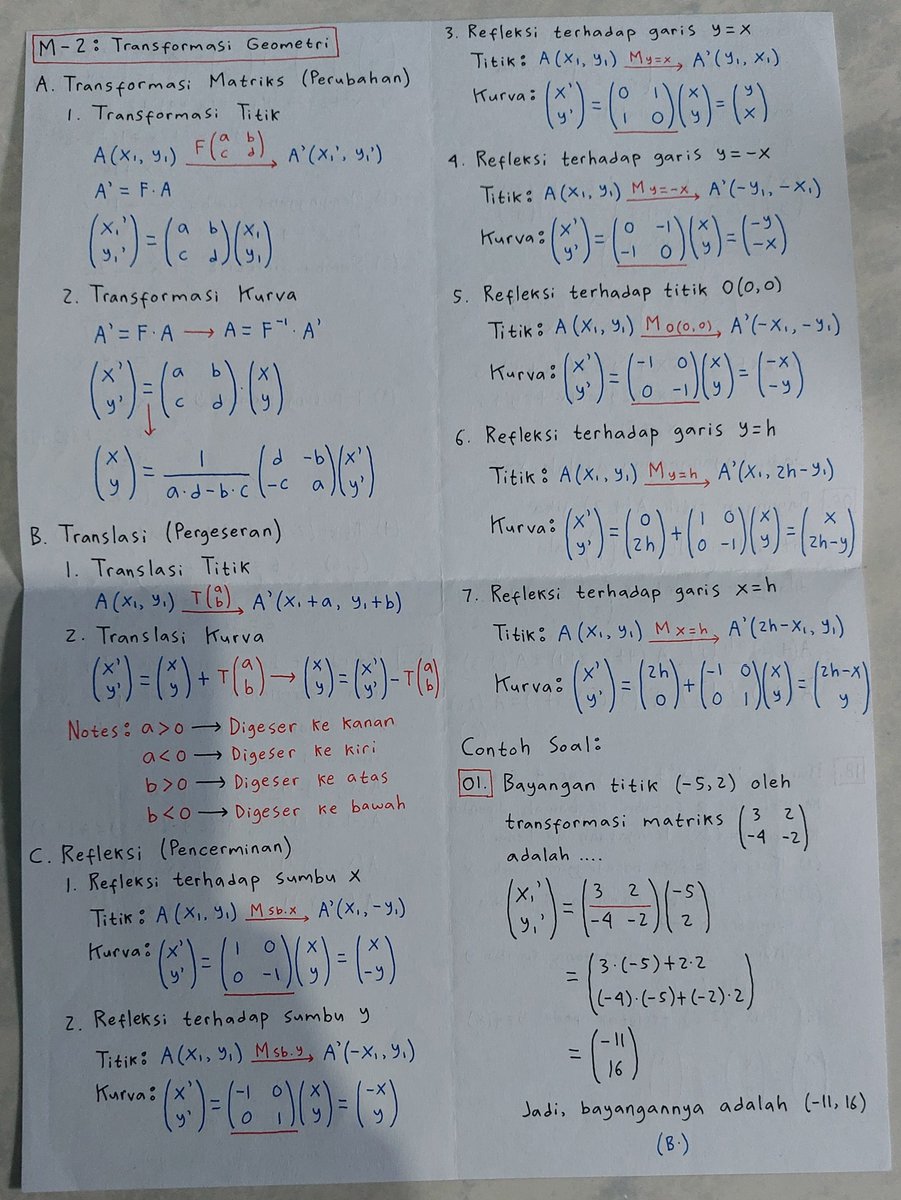 M-2: Transformasi Geometri
A. Transformasi Matriks (Perubahan)
1. Transformasi Titik
A(x₁, y₁) F(a b / c d) → A'(x₁', y₁')
A' = F·A
(x₁' / y₁') = (a b / c d)(x₁ / y₁)
2. Transformasi Kurva
A' = F·A → A = F⁻¹·A'
(x' / y') = (a b / c d)·(x / y)
↓
(x / y) = 1/(a·d-b·c) (d -b / -c a)(x' / y')
B. Translasi (Pergeseran)
1. Translasi Titik
A(x₁, y₁) T(a / b) → A'(x₁+a, y₁+b)
2. Translasi Kurva
(x' / y') = (x / y) + T(a / b) → (x / y) = (x' / y') - T(a / b)
Notes: a>0 → Digeser ke kanan
a<0 → Digeser ke kiri
b>0 → Digeser ke atas
b<0 → Digeser ke bawah
C. Refleksi (Pencerminan)
1. Refleksi terhadap sumbu x
Titik: A(x₁, y₁) M sb.x → A'(x₁, -y₁)
Kurva: (x' / y') = (1 0 / 0 -1)(x / y) = (x / -y)
2. Refleksi terhadap sumbu y
Titik: A(x₁, y₁) M sb.y → A'(-x₁, y₁)
Kurva: (x' / y') = (-1 0 / 0 1)(x / y) = (-x / y)
3. Refleksi terhadap garis y=x
Titik: A(x₁, y₁) M y=x → A'(y₁, x₁)
Kurva: (x' / y') = (0 1 / 1 0)(x / y) = (y / x)
4. Refleksi terhadap garis y=-x
Titik: A(x₁, y₁) M y=-x → A'(-y₁, -x₁)
Kurva: (x' / y') = (0 -1 / -1 0)(x / y) = (-y / -x)
5. Refleksi terhadap titik O(0,0)
Titik: A(x₁, y₁) M O(0,0) → A'(-x₁, -y₁)
Kurva: (x' / y') = (-1 0 / 0 -1)(x / y) = (-x / -y)
6. Refleksi terhadap garis y=h
Titik: A(x₁, y₁) M y=h → A'(x₁, 2h-y₁)
Kurva: (x' / y') = (0 / 2h) + (1 0 / 0 -1)(x / y) = (x / 2h-y)
7. Refleksi terhadap garis x=h
Titik: A(x₁, y₁) M x=h → A'(2h-x₁, y₁)
Kurva: (x' / y') = (2h / 0) + (-1 0 / 0 1)(x / y) = (2h-x / y)
Contoh Soal:
01. Bayangan titik (-5,2) oleh
transformasi matriks (3 2 / -4 -2)
adalah ....
(x₁' / y₁') = (3 2 / -4 -2)(-5 / 2)
= (3·(-5)+2·2 / (-4)·(-5)+(-2)·2)
= (-11 / 16)
Jadi, bayangannya adalah (-11, 16)
(B.)